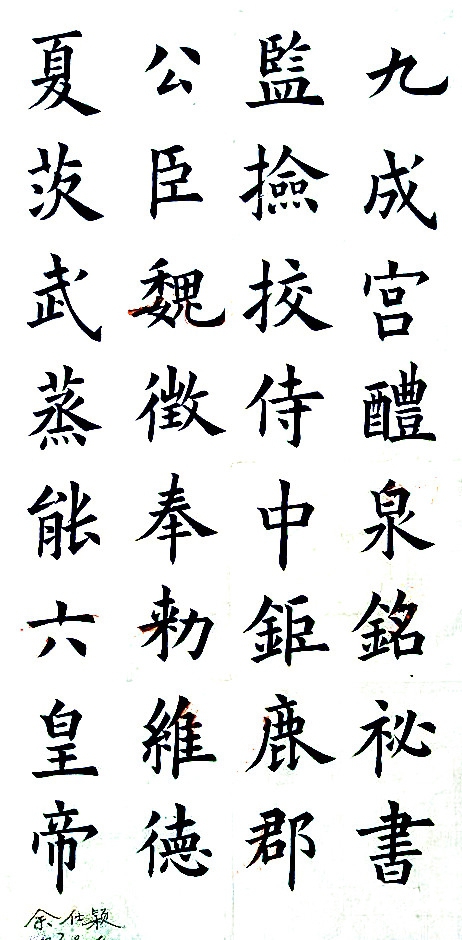 九成宮醴泉銘祕書
監撿挍侍中鉅鹿郡
公臣魏徵奉勑維德
夏茨武蒸能六皇帝
余仕颖